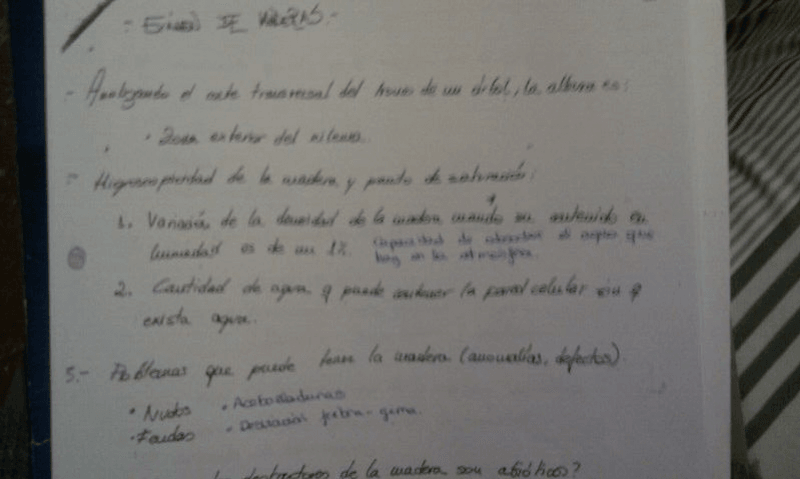 DE MADERAS.-
- Analizando el corte transversal del tronco de un árbol, la albura es:
• Zona exterior del xilema.
- Higroscopicidad de la madera y punto de saturación:
1. Variación de la densidad de la madera cuando su contenido en
humedad es de un 1%. Capacidad de absorber el agua que
hay en la atmósfera.
2. Cantidad de agua q puede contener la pared celular sin q
exista agua.
5.- Problemas que puede tener la madera (anomalías, defectos).
• Nudos • Acebolladuras
• Fendas • Desviación fibra - gema.
de la madera son abióticos?